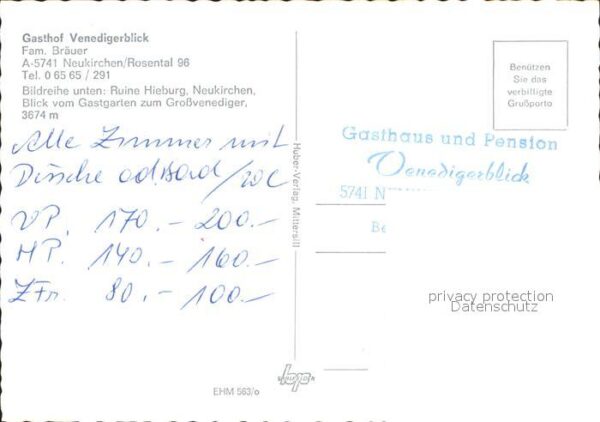 Gasthof Venedigerblick
Fam. Bräuer
A-5741 Neukirchen/Rosental 96
Tel. 0 65 65 / 291
Bildreihe unten: Ruine Hieburg, Neukirchen,
Blick vom Gastgarten zum Großvenediger,
3674 m
Alle Zimmer mit
Dusche od. Bad /WC
VP. 170.- 200.-
HP. 140.- 160.-
ZFr. 80.- 100.-
EHM 563/o
Huber-Verlag, Mittersill
Benützen
Sie das
verbilligte
Grußporto
Gasthaus und Pension
Venedigerblick
5741 N
Be
privacy protection
Datenschutz